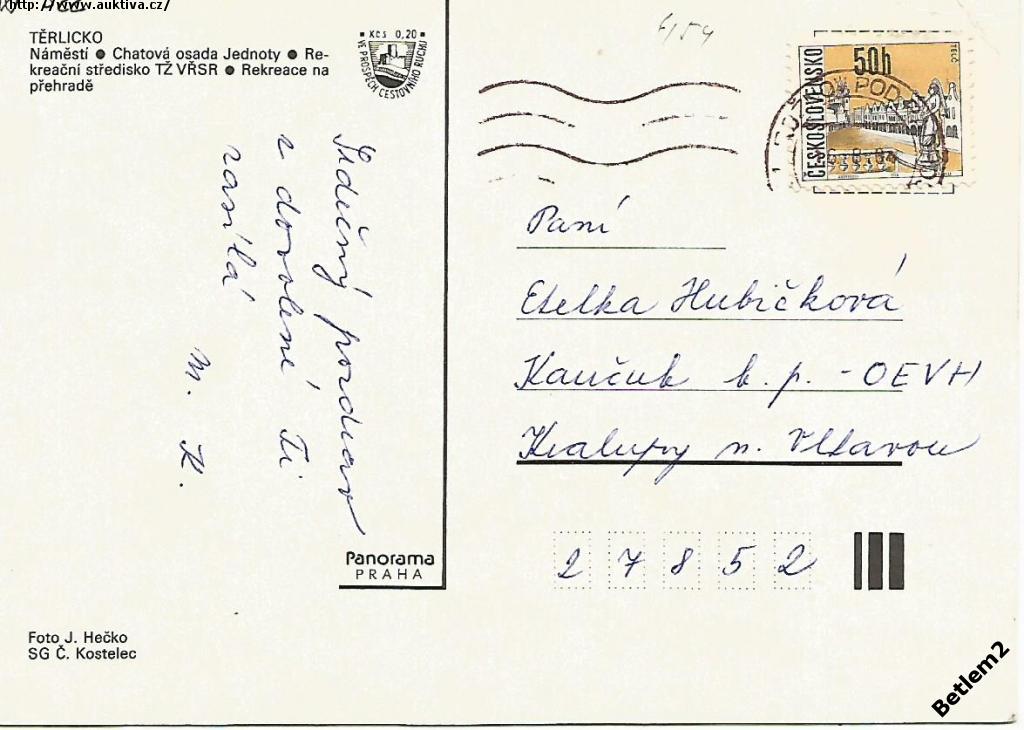 http://www.auktiva.cz/
TĚRLICKO
Náměstí ● Chatová osada Jednoty ● Re-
kreační středisko TŽ VŘSR ● Rekreace na
přehradě
Kčs 0,20
VE PROSPĚCH CESTOVNÍHO RUCHU
4/54
ČESKOSLOVENSKO
50h
TELČ
Srdečný pozdrav
z dovolené Ti
zasílá
M. K.
Paní
Etelka Hubičková
Kaučuk b. p. - OEVH
Kralupy n. Vltavou
27852
Panorama
PRAHA
Foto J. Hečko
SG Č. Kostelec
Betlem2